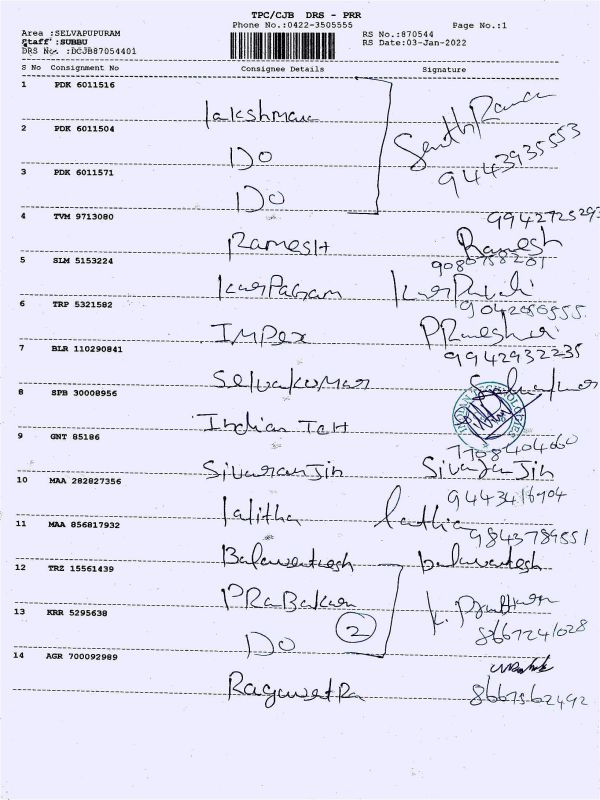 TPC/CJB DRS - PRR
Phone No.:0422-3505555 Page No.:1
Area :SELVAPUPURAM RS No.:870544
Staff :SUBBU RS Date:03-Jan-2022
DRS No. :DCJB87054401
S No Consignment No Consignee Details Signature
1 PDK 6011516
Lakshmana
2 PDK 6011504
Do
9443935553
3 PDK 6011571
Do
4 TVM 9713080 9942725293
Ramesh Ramesh
5 SLM 5153224 9080758201
KarPagam
6 TRP 5321582 9042050555
Impex
7 BLR 110290841 9942932235
Selvakumar
8 SPB 30008956
Indian Tch
9 GNT 85186 7708404060
SivaranJin
10 MAA 282827356 9443416904
lalitha
11 MAA 856817932 9843789551
Balavenkagesh
12 TRZ 15561439
PRaBakan
13 KRR 5295638 8667241028
Do 2
14 AGR 700092989
RagaventRa 8667562492